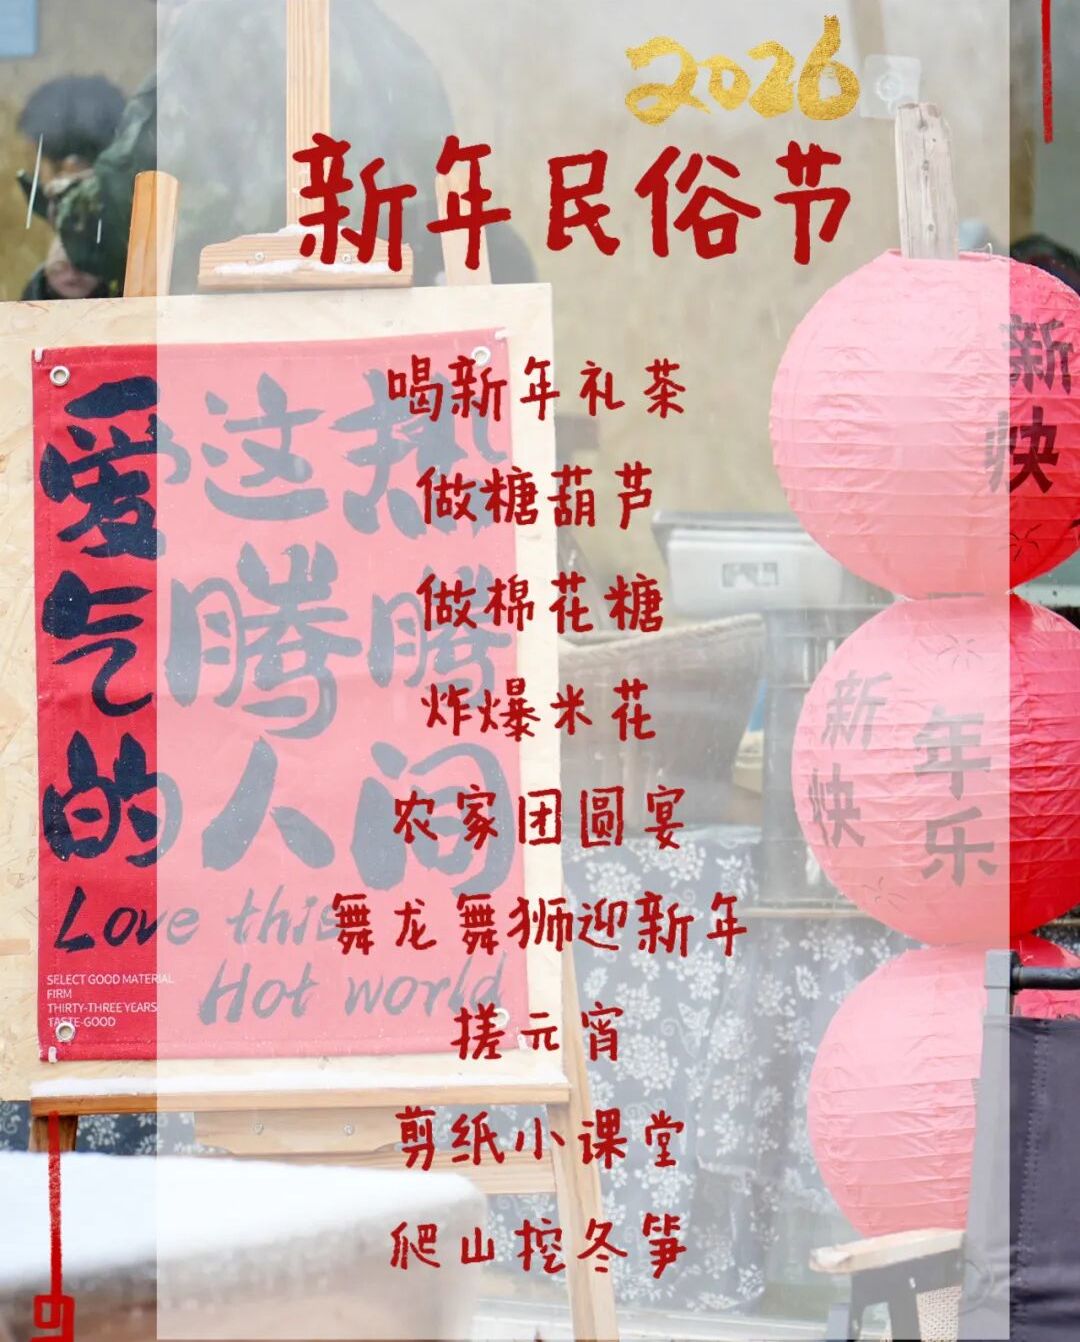 2026
新年民俗节
喝新年礼茶
做糖葫芦
做棉花糖
炸爆米花
农家团圆宴
舞龙舞狮迎新年
搓元宵
剪纸小课堂
爬山挖冬笋
爱这热
气腾腾
的人间
Love this
Hot world
SELECT GOOD MATERIAL
FIRM
THIRTY-THREE YEARS
TASTE-GOOD
新
快
新
快
年
乐